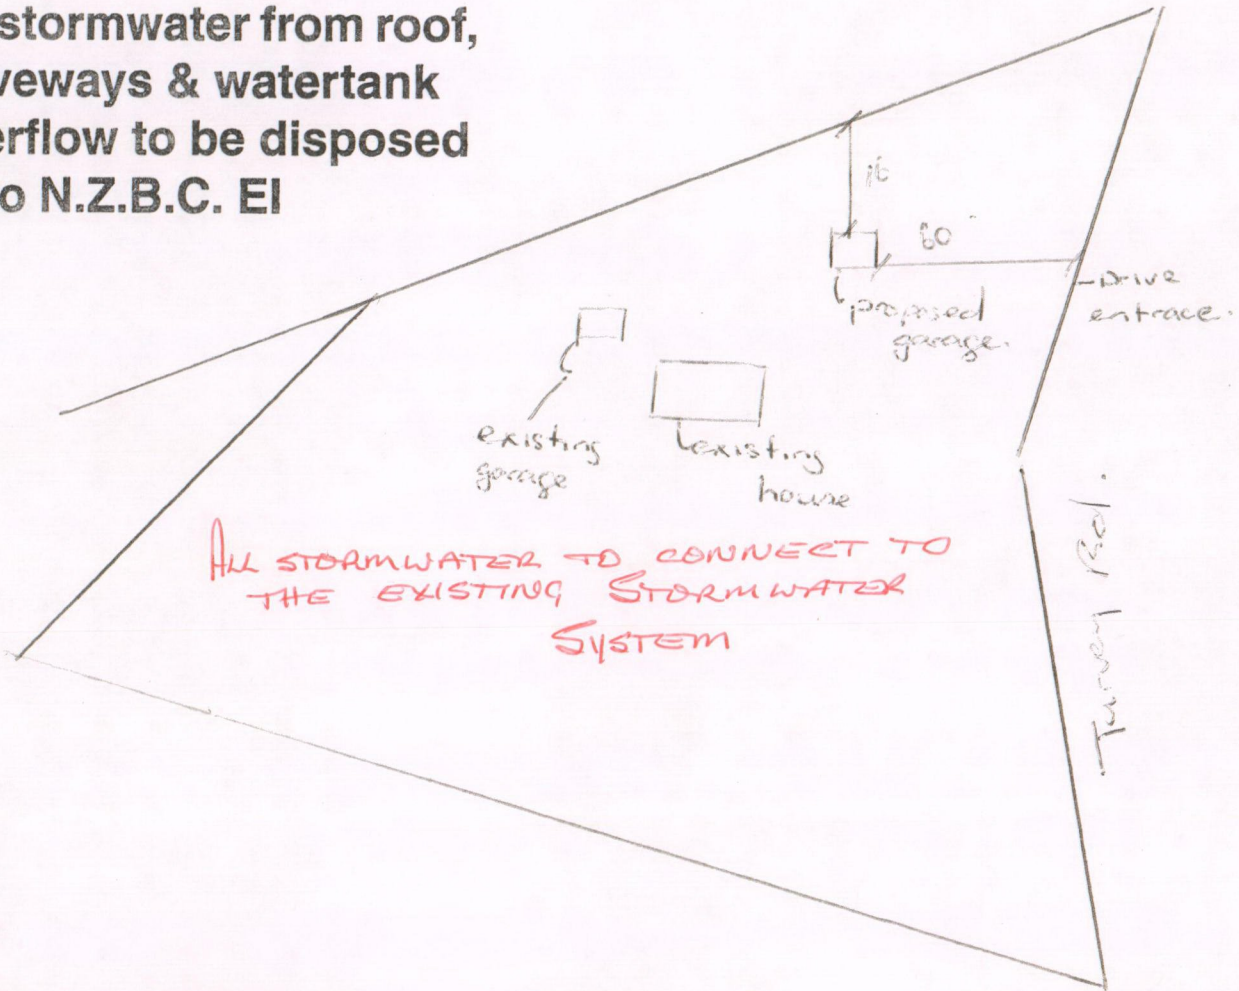 stormwater from roof,
veways & watertank
erflow to be disposed
o N.Z.B.C. EI
16
60
Drive
entrace.
proposed
garage.
existing
garage
existing
house
ALL STORMWATER TO CONNECT TO
THE EXISTING STORMWATER
SYSTEM
Rd.